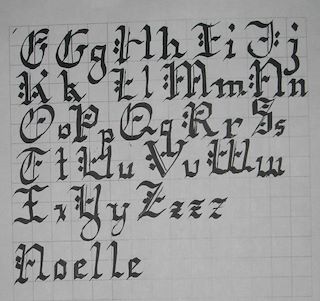 G G g H h I i J j
K k L l M m N n
O o P p Q q R r S s
T t U u V v W w
X x Y y Z z z z
Noelle